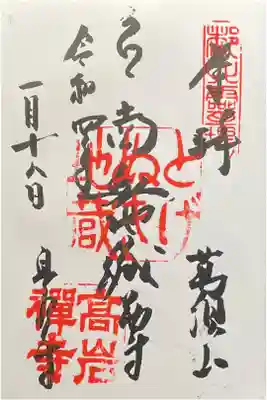 奉拝
萬頂山
とげぬき地蔵
南無地蔵尊
令和四年
一月十八日
高岩寺
高岩禪寺